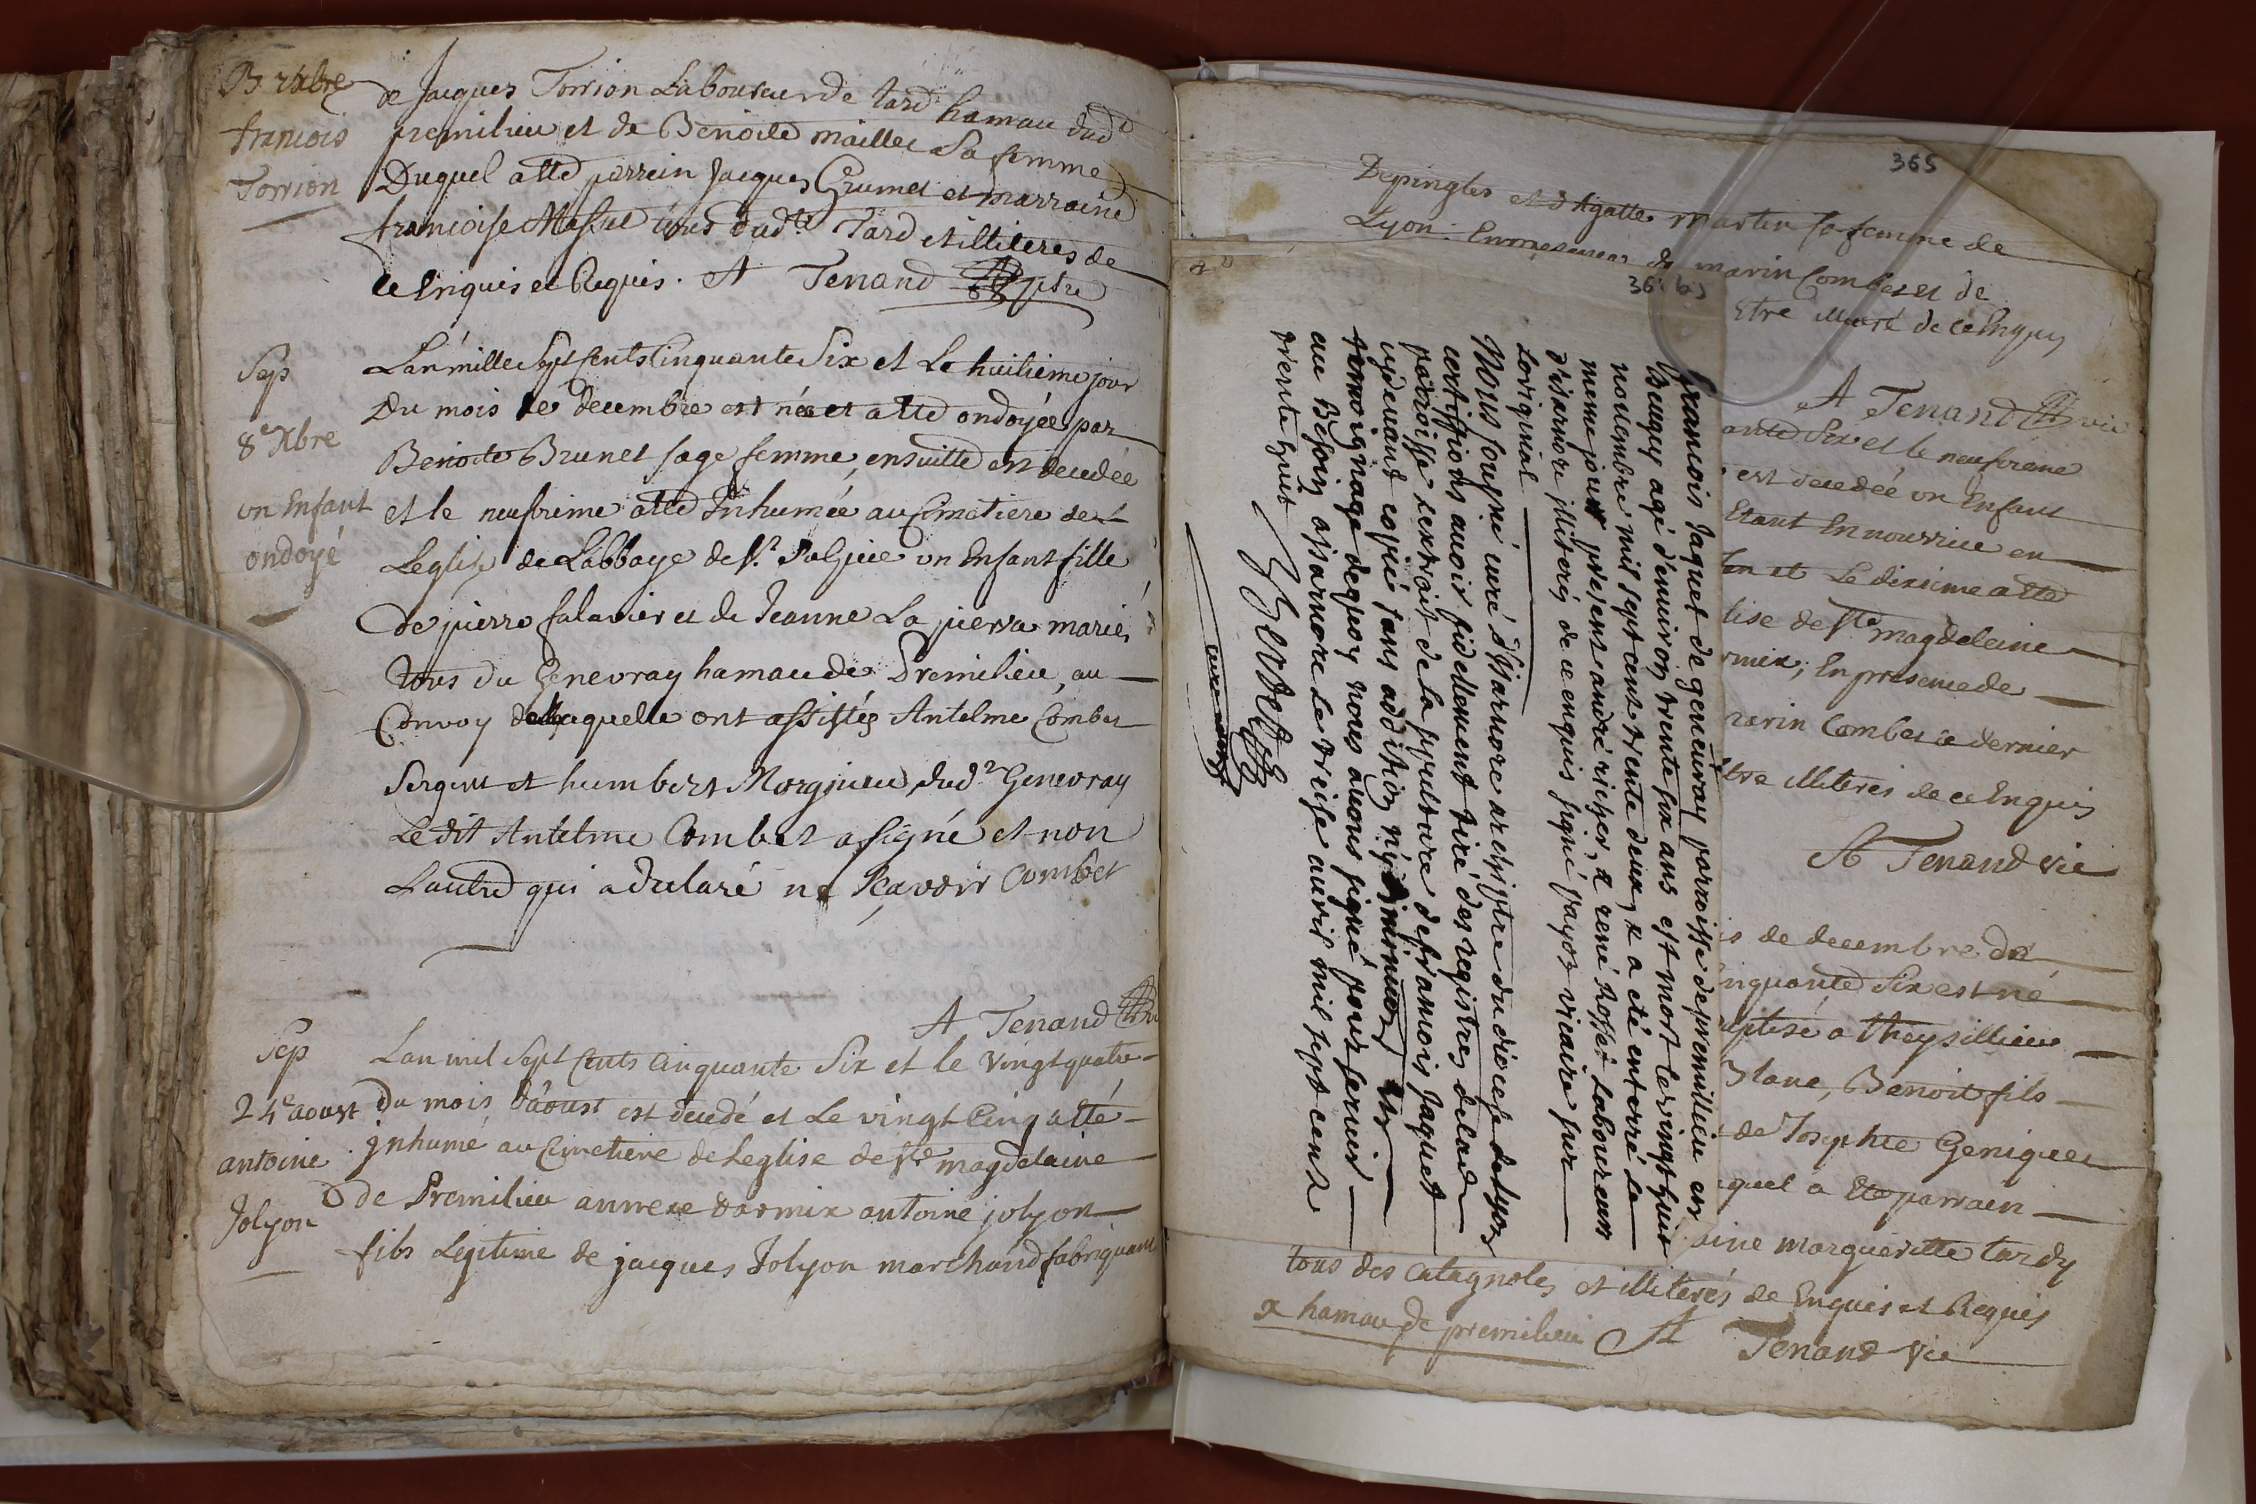 B xbre
francois
Torrion
de Jacques Torrion Laboureur de tard hamau dud
premilieu et de Benoite maillet Sa femme
Duquel a été parrein Jacques Grumet et marraine
francoise Massue tous dud Tard et illiteres de
ce Enquis et Requis. A Tenand ptre
Sep
8e Xbre
un Enfant
ondoyé
L'an mille Sept Cents Cinquante Six et Le huitieme jour
Du mois de decembre est née et a été ondoyée par
Benoite Brunet sage femme, ensuitte est decedée
et le neufvieme a été Inhumée au Cimetiere de
Leglise de Labbaye de St Sulpice un Enfant fille
de pierre falavier et de Jeanne La pierra mariés
tous du Genevray hamau de Premilieu, au
Convoy de laquelle ont assistés Antelme Combet
Sergent et humbert Morgnieu dud Genevray
Le dit Antelme Combet a signé et non
Lautre qui a declaré ne scavoir Combet
A Tenand
Sep
24e aoust
antoine
Jolyon
Lan mil Sept Cents Cinquante Six et le vingt quatre
du mois d'aoust est decedé et Le vingt Cinq a été
jnhumé au Cimetiere de Leglise de Ste magdelaine
de Premilieu annexe darmix antoine jolyon
fils Legitime de jacques Jolyon marchand fabriquant
365
Depingles et d'Agatte martin sa femme de
Lyon. En presence de marin Combet et de
Etre illiteré de ce Enquis
A Tenand vic
ante Six et le neufvieme
est decedée un Enfant
Etant En nourrice en
et Le dixieme a été
lise de Ste magdeleine
rmix; En presence de
marin Combet ce dernier
tre illiteres de ce Enquis
A Tenand vic
is de decembre
inquante Six est né
ptisé a theysillieu
Blanc, Benoit fils
de Josephte Geniquet
quel a Eté parrain
aine margueritte tardy
tous des Catagnoles et illiterés de Enquis et Requis
x hamau de premilieu A Tenand Vic
francois Jaquet de geneuvray parroisse de premillieu en
Beugey agé d'enuiron trente six ans est mort le vingt huit
nouembre mil sept cent trente deux, & a eté enterré le
meme jour present andré richer, & rené Rosset Laboureurs
d'isarnore illiterés de ce enquis signé vicaire sur
Loriginal
Nous soussigné curé d'Isarnore archiptre du diocese de Lyon
certiffions auoir fidellement tiré des registres de lad
parroisse Lextrait de la sepulture de francois Jaquet
cydeuant copié sans addition ny diminution en
temoignage dequoy nous auons signé pour seruir
au Besoin a isarnore Le treise auril mil sept cent
trente huit